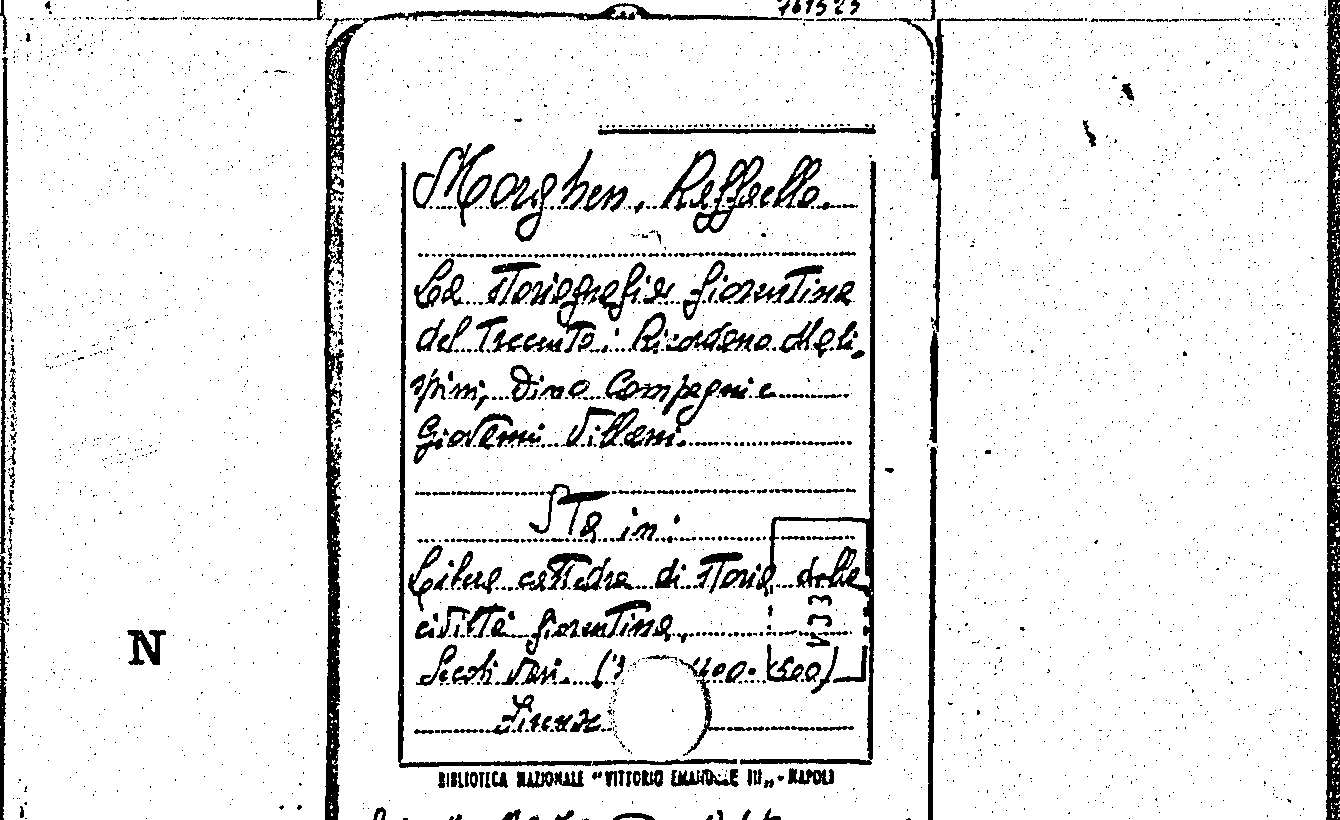 761523
Morghen, Raffaello.
La storiografia fiorentina
del Trecento: Ricordano Mali-
spini, Dino Compagni e
Giovanni Villani.
Sta in:
Libera cattedra di storia della
civiltà fiorentina,
V 33
Secoli vari. (' 400. 500)
Firenze
N
BIBLIOTECA NAZIONALE "VITTORIO EMANUELE III" - NAPOLI